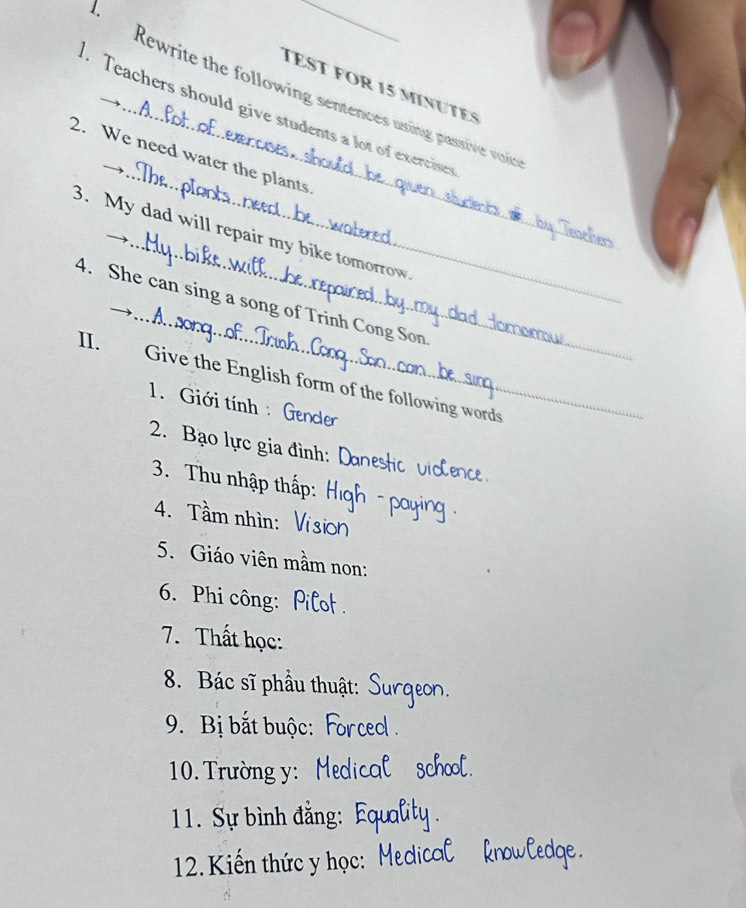 I.
TEST FOR 15 MINUTES
Rewrite the following sentences using passive voice
1. Teachers should give students a lot of exercises.
→...A..lot..of..exercises..should..be..given..students..by..Teachers
2. We need water the plants.
→...The...plants...need...be...watered.
3. My dad will repair my bike tomorrow.
→...My..bike..will...be..repaired..by..my..dad..tomorrow.
4. She can sing a song of Trinh Cong Son.
→...A..song..of...Trinh..Cong..Son..can..be..sing
II. Give the English form of the following words
1. Giới tính : Gender
2. Bạo lực gia đình: Danestic violence.
3. Thu nhập thấp: High - paying.
4. Tầm nhìn: Vision
5. Giáo viên mầm non:
6. Phi công: Pilot.
7. Thất học:
8. Bác sĩ phẫu thuật: Surgeon.
9. Bị bắt buộc: Forced.
10. Trường y: Medical school.
11. Sự bình đẳng: Equality.
12. Kiến thức y học: Medical knowledge.